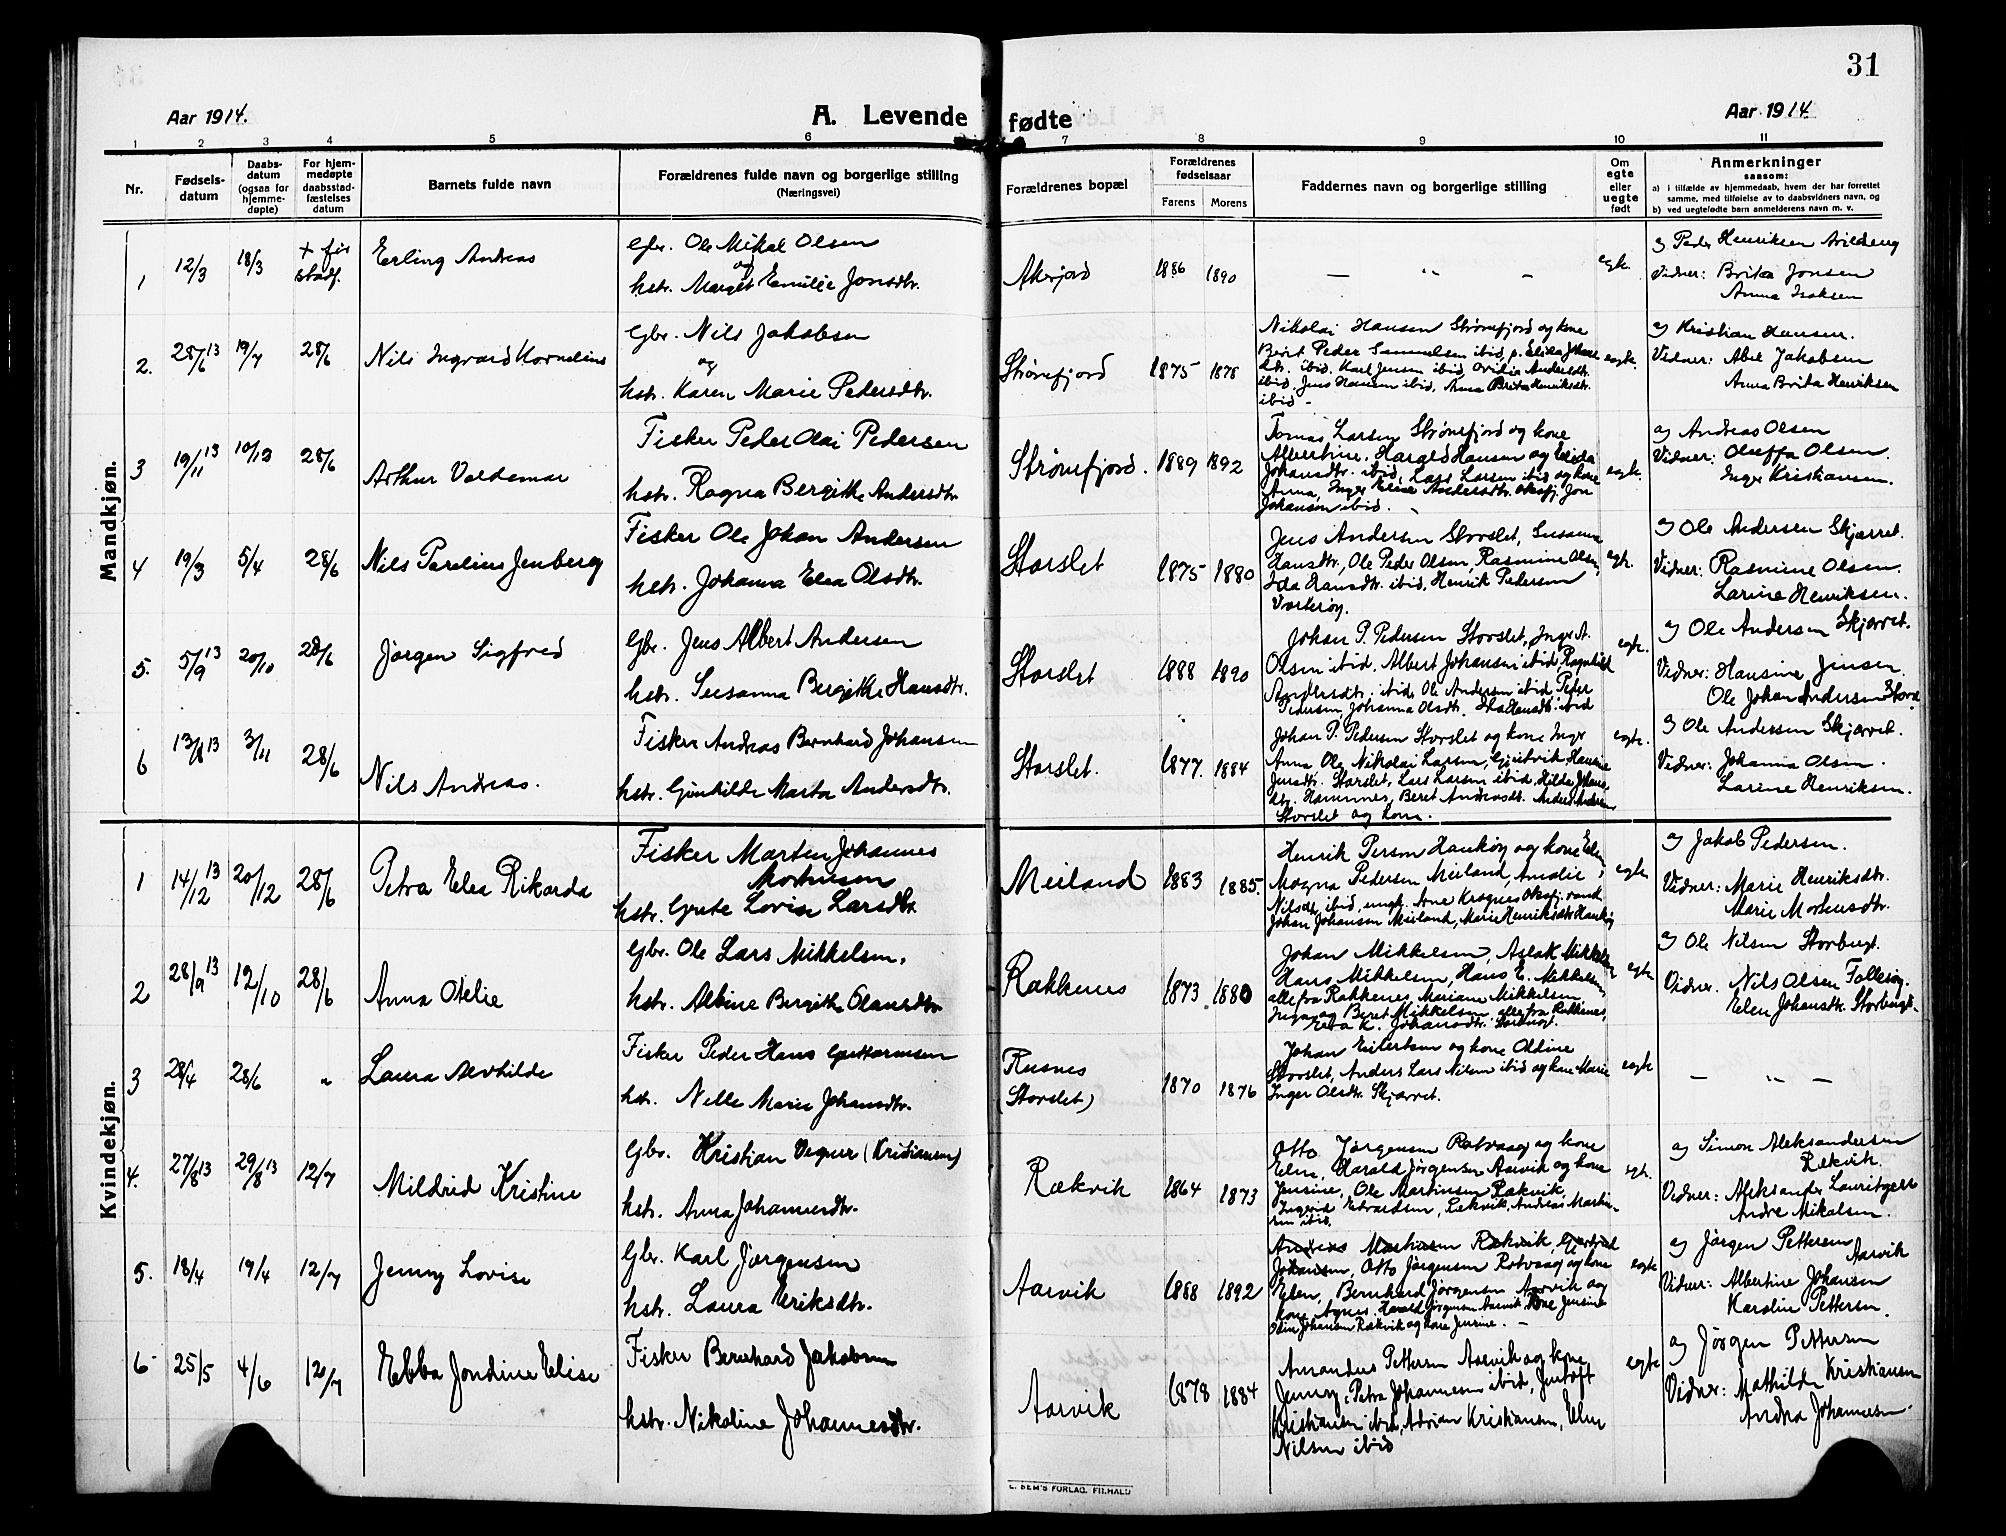 31
Aar 1914.
A. Levende fødte
Aar 1914.
1 2 3 4 5 6 7 8 9 10 11
Nr.
Fødsels-
datum
Daabs-
datum
(ogsaa for
hjemme-
døpte)
For hjem-
medøpte
daabsstad-
fæstelses
datum
Barnets fulde navn
Forældrenes fulde navn og borgerlige stilling
(Næringsvei)
Forældrenes bopæl
Forældrenes
fødselsaar
Farens Morens
Faddernes navn og borgerlige stilling
Om
egte
eller
uegte
født
Anmerkninger
sansom:
a) i tilfælde av hjemmedaab, hvem der har forrettet
samme, med tilføielse av to daabsvidners navn, og
b) ved uegtefødte barn anmelderens navn m. v.
Mandkjøn.
1 12/3 18/3 + før stadf. Erling Andreas
Gbr. Ole Mikal Olsen
og
hstr. Marget Emilie Jonsdtr.
Akerjord 1886 1890 — " — egte.
a) Peder Henriksen
Vidner: Brita Jonsen
Anna Isaksen
2. 28/6 13 19/7 28/6 Nils Ingvard Kornelius
Gbr. Nils Jakobsen
og
hstr. Karen Marie Pedersdtr.
Strømfjord 1875 1878
Nikolai Hansen Strømfjord og kone
Berit Peder Samuelsen ibid, p. Elida Johans
dtr. ibid, Karl Jensen ibid, Ovidia Andersdtr.
ibid, Jens Hansen ibid, Anna Brita Henriksdtr.
ibid -
egte.
a) Kristian Hansen.
Vidner: Abel Jakobsen
Anna Brita Henriksen
3 19/11 13 10/12 28/6 Arthur Valdemar
Fisker Peder Olai Pedersen
hstr. Ragna Bergithe Andersdtr.
Strømfjord. 1889 1892
Tomas Larsen Strømfjord og kone
Albertine, Harald Hansen og Elida
Johansdtr. ibid, Lars Larsen ibid og kone
Anna, Inger Eline Andersdtr. Oksfj. Jon
Johansen ibid.
egte.
a) Andreas Olsen
Vidner: Oleffa Olsen
Inger Kristiansen.
4 19/3 5/4 28/6 Nils Parelius Jenberg
Fisker Ole Johan Andersen
hstr. Johanna Elea Olsdtr.
Storslet 1875 1880
Jens Andersen Storslet, Susanna
Hansdtr., Ole Peder Olsen, Rasmine Olsen,
Ida Hansdtr. ibid, Henrik Pedersen
Vorterøy.
egte.
a) Ole Andersen Skjærret.
Vidner: Rasmine Olsen.
Larine Henriksen.
5. 5/9 13 20/10 28/6 Jørgen Sigfred
Gbr. Jens Albert Andersen
hstr. Susanna Bergithe Hansdtr.
Storslet 1888 1890
Johan P. Pedersen Storslet, Inger A.
Olsen ibid, Albert Johansen ibid, Ragnhild
Andersdtr. ibid, Ole Andersen ibid, Peder
Pedersen, Johanna Olsdtr. Ida Hansdtr. ibid
egte.
a) Ole Andersen Skjærret.
Vidner: Hansine Jensen
Ole Johan Andersen Stors.
6 13/8 13 3/11 28/6 Nils Andreas.
Fisker Andreas Bernhard Johansen
hstr. Gunhilde Marta Andersdtr.
Storslet. 1877. 1884
Johan P. Pedersen Storslet og kone Inger
Anna Ole Nikolai Larsen, Hansine
Jensdtr. Storslet, Lars Larsen ibid, Hilda Johans
dtr. Hamnnes, Beret Andreasdtr. Anders Andersen
Storslet og kone.
egte.
a) Ole Andersen Skjærret.
Vidner: Johanna Olsen.
Larine Henriksen.
Kvindekjøn.
1 14/12 13 20/12 28/6 Petra Elea Rikarda
Fisker Marten Johannes
Mortensen
hstr. Grete Lovise Larsdtr.
Meiland 1883 1885
Henrik Person Haukøy og kone Elen
Magna Pedersen Meiland, Amalie
Nilsdtr. ibid, ungk. Arne Kragnes Oksfj. vand
Johan Johansen Meiland, Marie Henriksdtr Haukøy
egte
a) Jakob Pedersen.
Vidner: Marie Henriksdtr.
Marie Mortensdtr.
2 28/9 13 12/10 28/6 Anna Otelie
Gbr. Ole Lars Mikkelsen.
hstr. Albine Bergithe Olausdtr.
Rakkenes 1873. 1880
Johan Mikkelsen, Aslak Mikkelsen
Hans Mikkelsen, Hans E. Mikkelsen
alle fra Rakkenes, Mariane Mikkelsen,
Inga og Beret Mikkelsen alle fra Rakkenes,
Elea K. Johansdtr. Storbugt.
egte
a) Ole Nilsen Storbugt.
Vidner. Nils Olsen Follesøy.
Elen Johansdtr. Storbugt.
3 28/4 28/6 " Laura Alvhilde
Fisker Peder Hans Guttormsen
hst. Nelle Marie Johansdtr.
Rusnes
(Storslet)
1870 1876
Johan Eilertsen og kone Oldine
Storslet, Anders Lars Nilsen ibid og kone Marie
Inger Olsdtr. Skjærret.
egte
— " —
4. 27/8 13 29/8 13 12/7 Mildrid Kristine
Gbr. Kristian Vegner (Kristiansen)
hstr. Anna Johannesdtr.
Rækvik 1864 1873
Otto Jørgensen Rotvaag og kone
Elen, Harald Jørgensen Aarvik og kone
Jensine, Ole Martinsen Rækvik,
Ingrid Edvardsen, Lekvik, Andreas Martin-
sen ibid.
egt.
a) Simon Aleksandersen
Rækvik.
Vidner: Aleksander Lauritzen
Andre Mikalsen.
5. 18/4 19/4 12/7 Jenny Lovise
Gbr. Karl Jørgensen
hstr. Laura Eriksdtr.
Aarvik 1888 1892
Andreas Martinsen Rækvik, Gjertrud
Johansen, Otto Jørgensen Rotvaag og kone
Elen, Bernhard Jørgensen Aarvik og
kone Agnes, Harald Jørgensen Aarvik kone Jensine
Odin Johansen Rækvik og kone Jensine. —
egte
a) Jørgen Pettersen
Aarvik
Vidner: Albertine Johansen
Karolin Pettersen.
6 25/5 4/6 12/7 Ebba Jondine Elise
Fisker Bernhard Jakobsen
hstr. Nikoline Johannesdtr.
Aarvik 1878 1884
Amandus Pettersen Aarvik og kone
Jenny, Petra Johannesen ibid, Jentoft
Kristiansen ibid, Adrian Kristiansen, Elen
Nilsen ibid
egte
a) Jørgen Pettersen
Vidner: Mathilde Kristiansen
Andrea Johannesen
E. SEM'S FORLAG, FR.HALD